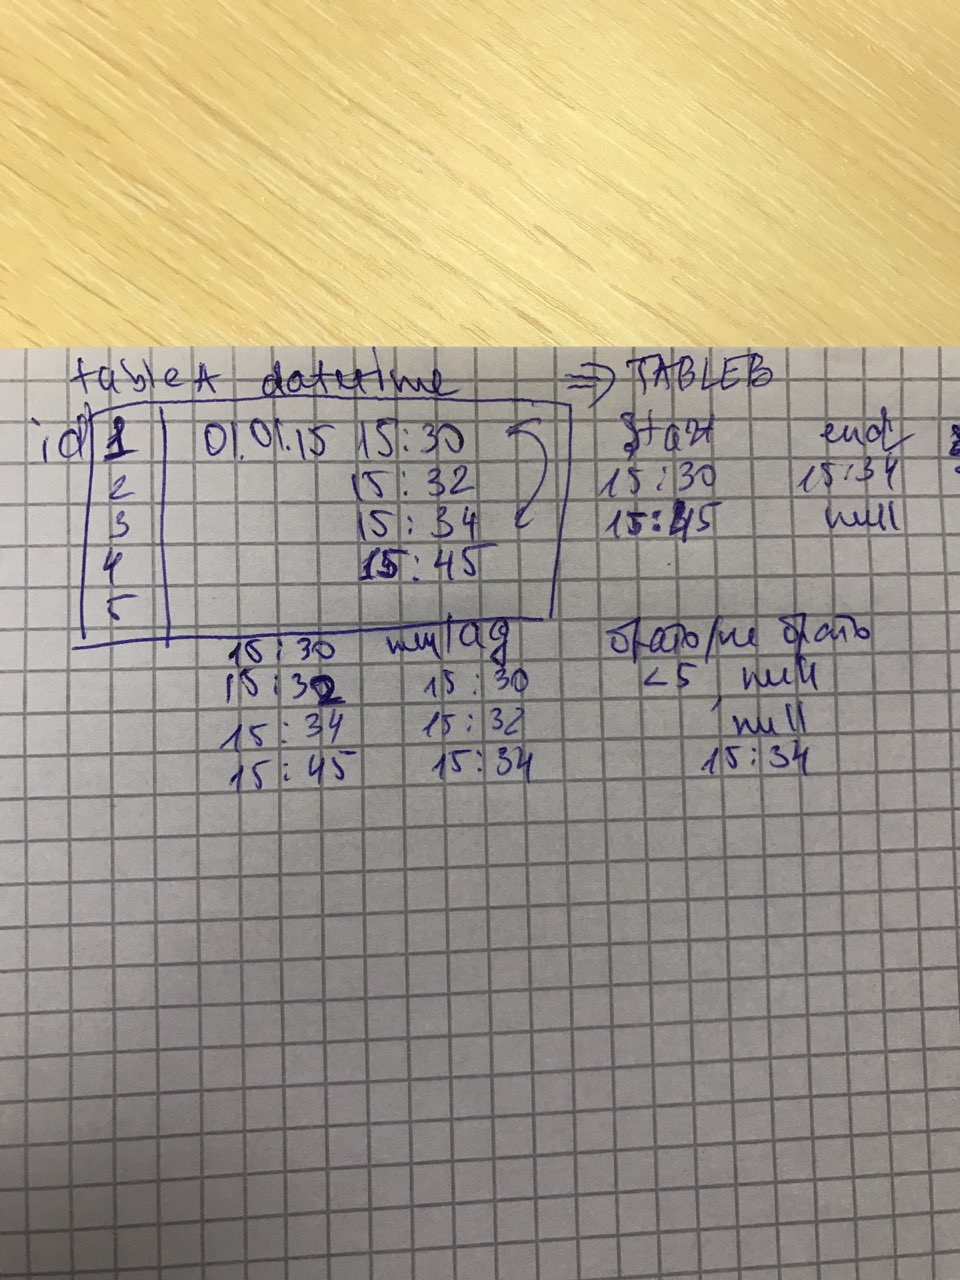 table A datetime ⇒ TABLEB
id 1 01.01.15 15:30 start end
2 15:32 15:30 15:34
3 15:34 15:45 null
4 15:45
5
15:30 null lag брать/не брать
15:32 15:30 <5, null
15:34 15:32 null
15:45 15:34 15:34